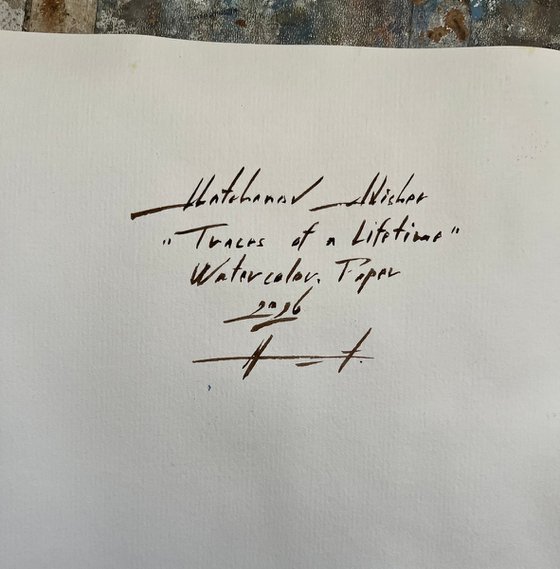 Matchanov Alisher
"Traces of a Lifetime"
Watercolor. Paper
2026